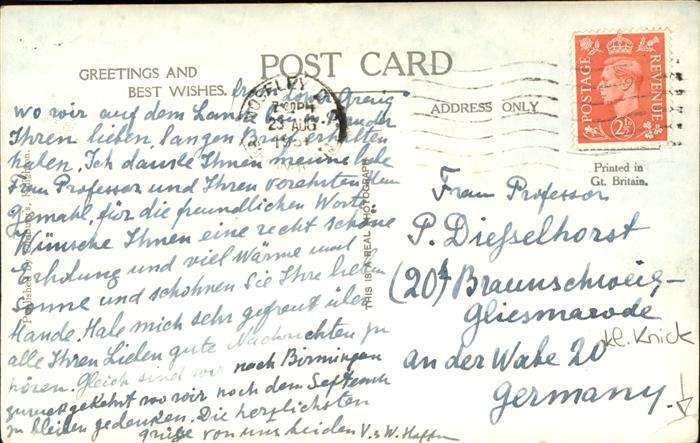 POST CARD
GREETINGS AND
BEST WISHES.
ADDRESS ONLY
POSTAGE
REVENUE
2½
Printed in
Gt. Britain.
THIS IS A REAL PHOTOGRAPH
23 AUG
wo wir auf dem Lande
Ihren lieben, langen Brief erhalten
haben. Ich danke Ihnen meine liebe
Frau Professor und Ihren verehrten
Gemahl, für die freundlichen Worte
Wünsche Ihnen eine recht schöne
Erholung und viel Wärme und
Sonne und schohnen Sie Ihre lieben
Hände. Habe mich sehr gefreut über
alle Ihren Lieben gute Nachrichten zu
hören. Gleich sind wir nach Birmingam
zurückgekehrt wo wir noch dem September
zu bleiben gedenken. Die herzlichsten
grüße von uns beiden V. u W.
Frau Professor
P. Diesselhorst
(20) Braunschweig-
Gliesmarode
an der Wabe 20
Germany.
kl. Knick